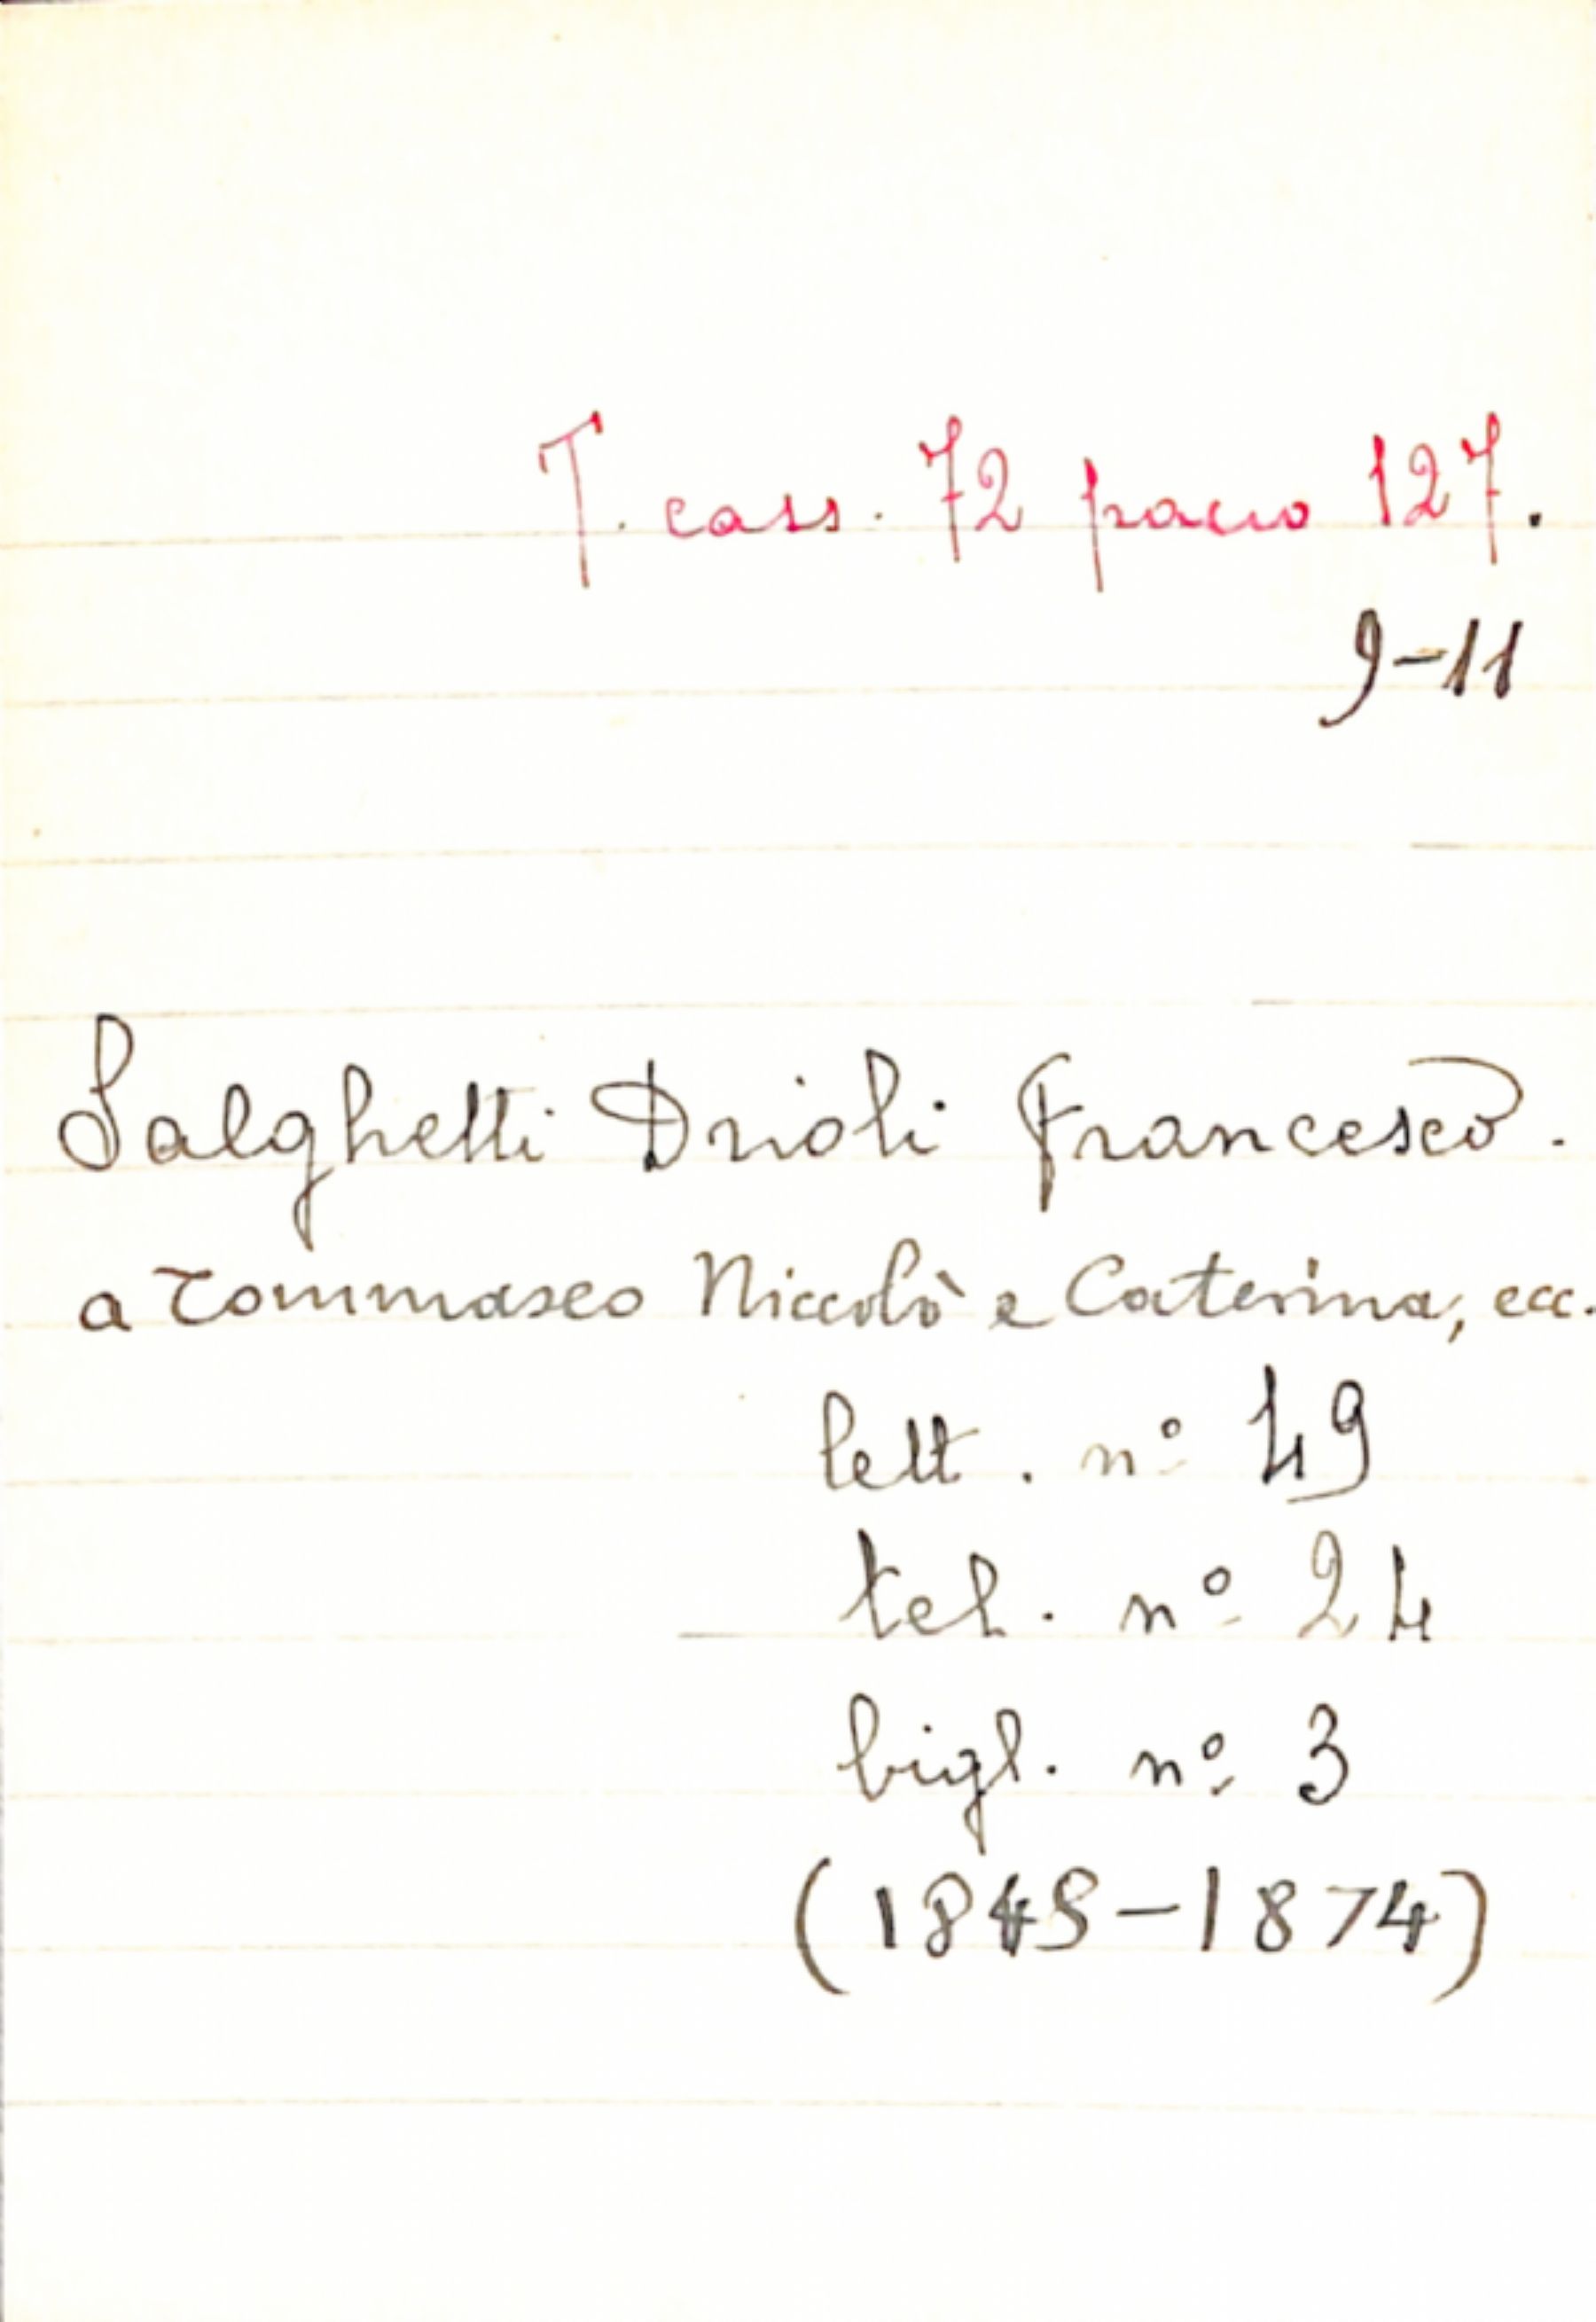 T. cass. 72 pacco 127.
9-11
Salghetti Drioli Francesco.
a Tommaseo Niccolò e Caterina, ecc.
lett. nº 49
tel. nº 24
bigl. nº 3
(1848-1874)